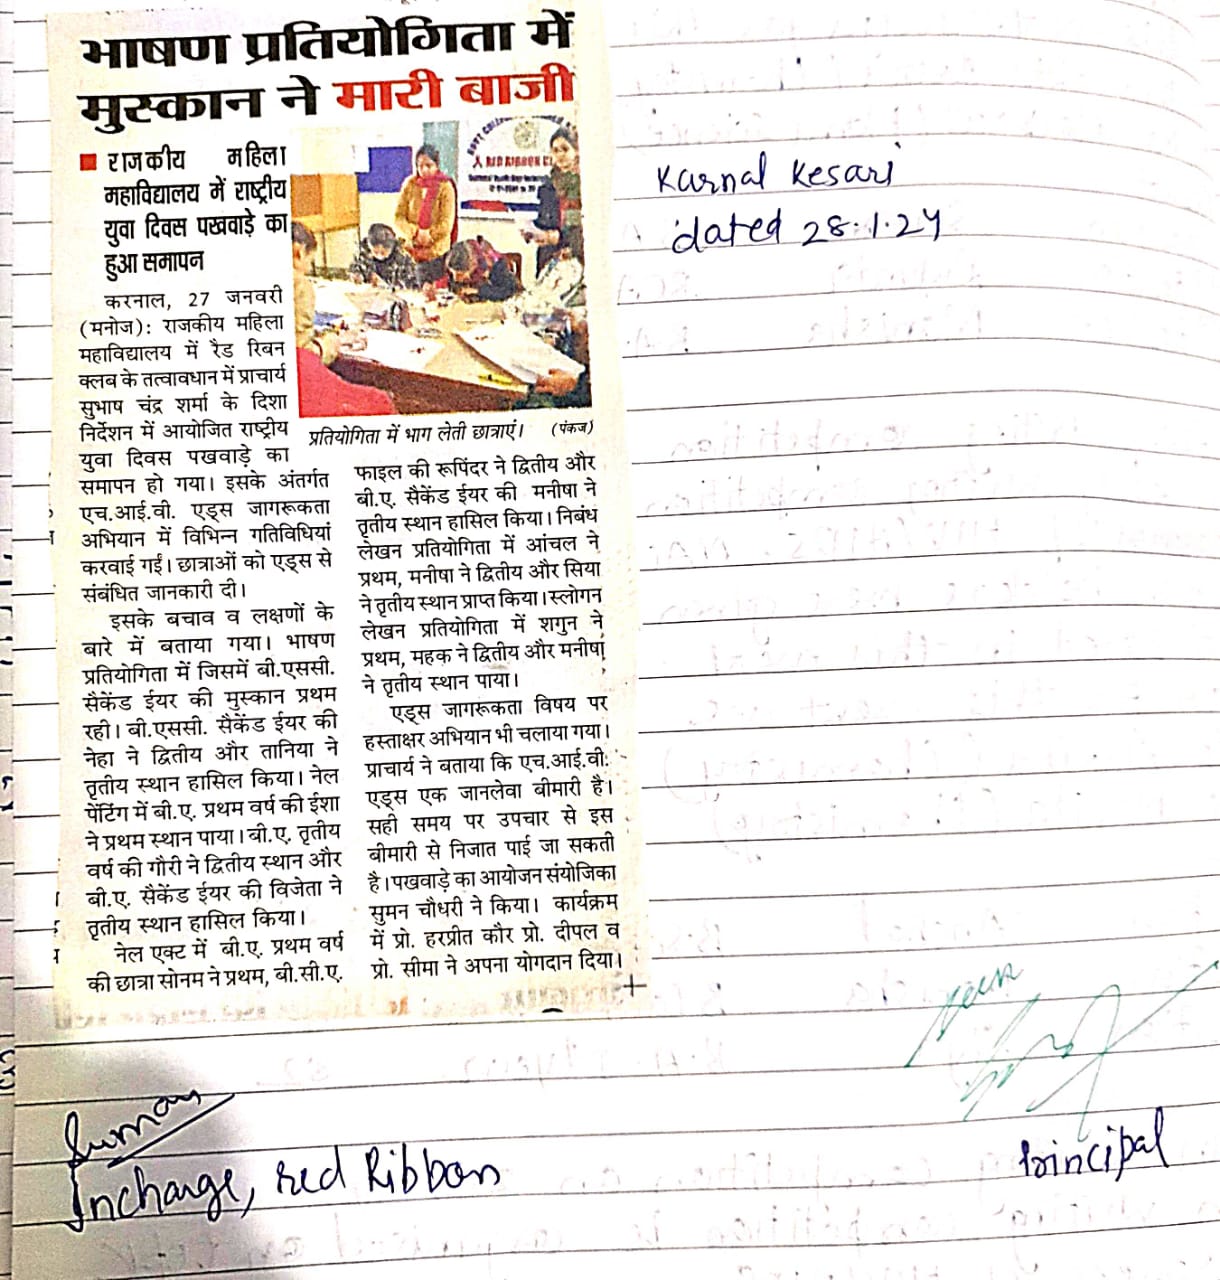 भाषण प्रतियोगिता में
मुस्कान ने मारी बाजी
राजकीय महिला
महाविद्यालय में राष्ट्रीय
युवा दिवस पखवाड़े का
हुआ समापन
करनाल, 27 जनवरी
(मनोज): राजकीय महिला
महाविद्यालय में रैड रिबन
क्लब के तत्वावधान में प्राचार्य
सुभाष चंद्र शर्मा के दिशा
निर्देशन में आयोजित राष्ट्रीय
युवा दिवस पखवाड़े का
समापन हो गया। इसके अंतर्गत
एच.आई.वी. एड्स जागरूकता
अभियान में विभिन्न गतिविधियां
करवाई गईं। छात्राओं को एड्स से
संबंधित जानकारी दी।
इसके बचाव व लक्षणों के
बारे में बताया गया। भाषण
प्रतियोगिता में जिसमें बी.एससी.
सैकेंड ईयर की मुस्कान प्रथम
रही। बी.एससी. सैकेंड ईयर की
नेहा ने द्वितीय और तानिया ने
तृतीय स्थान हासिल किया। नेल
पेंटिंग में बी.ए. प्रथम वर्ष की ईशा
ने प्रथम स्थान पाया। बी.ए. तृतीय
वर्ष की गौरी ने द्वितीय स्थान और
बी.ए. सैकेंड ईयर की विजेता ने
तृतीय स्थान हासिल किया।
नेल एक्ट में बी.ए. प्रथम वर्ष
की छात्रा सोनम ने प्रथम, बी.सी.ए.
GOVT COLLEGE
RED RIBBON
प्रतियोगिता में भाग लेती छात्राएं। (पंकज)
फाइल की रूपिंदर ने द्वितीय और
बी.ए. सैकेंड ईयर की मनीषा ने
तृतीय स्थान हासिल किया। निबंध
लेखन प्रतियोगिता में आंचल ने
प्रथम, मनीषा ने द्वितीय और सिया
ने तृतीय स्थान प्राप्त किया। स्लोगन
लेखन प्रतियोगिता में शगुन ने
प्रथम, महक ने द्वितीय और मनीषा
ने तृतीय स्थान पाया।
एड्स जागरूकता विषय पर
हस्ताक्षर अभियान भी चलाया गया।
प्राचार्य ने बताया कि एच.आई.वी.
एड्स एक जानलेवा बीमारी है।
सही समय पर उपचार से इस
बीमारी से निजात पाई जा सकती
है। पखवाड़े का आयोजन संयोजिका
सुमन चौधरी ने किया। कार्यक्रम
में प्रो. हरप्रीत कौर प्रो. दीपल व
प्रो. सीमा ने अपना योगदान दिया।
Karnal Kesari
dated 28.1.24
Suman
Incharge, red Ribbon
Seen
Principal